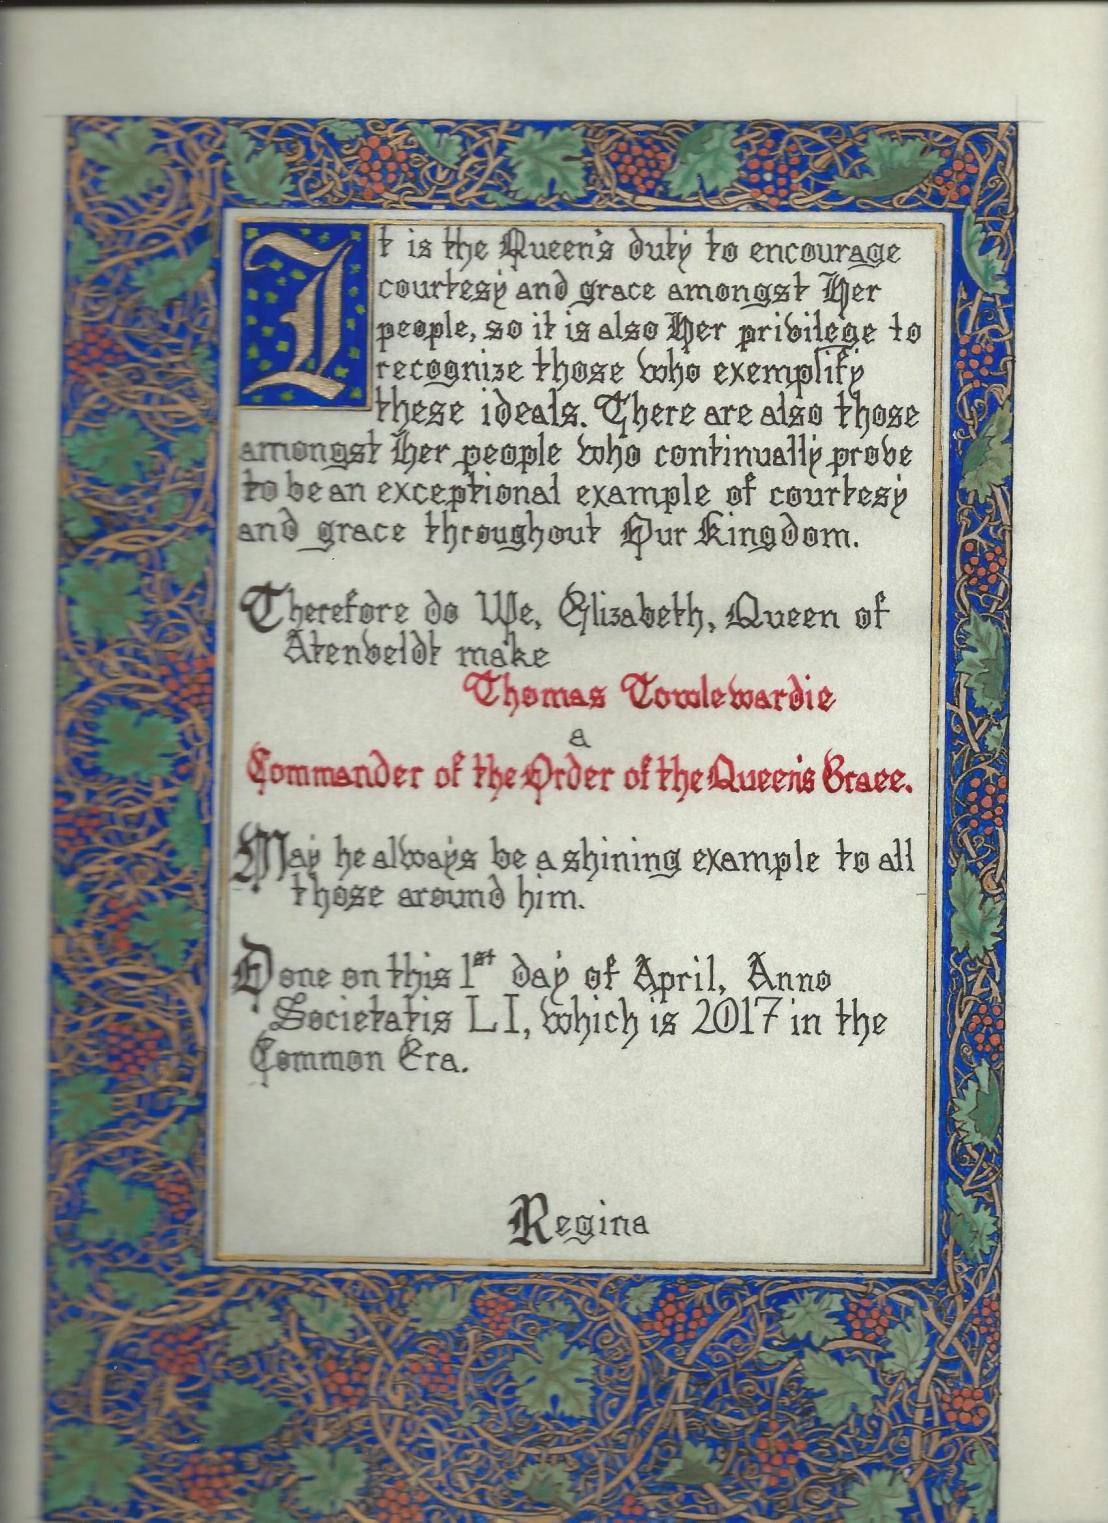 It is the Queen's duty to encourage
courtesy and grace amongst Her
people, so it is also Her privilege to
recognize those who exemplify
these ideals. There are also those
amongst Her people who continually prove
to be an exceptional example of courtesy
and grace throughout Our Kingdom.
Therefore do We, Elizabeth, Queen of
Atenveldt make
Thomas Towlewardie
a
Commander of the Order of the Queen's Grace.
May he always be a shining example to all
those around him.
Done on this 1st day of April, Anno
Societatis LI, which is 2017 in the
Common Era.
Regina